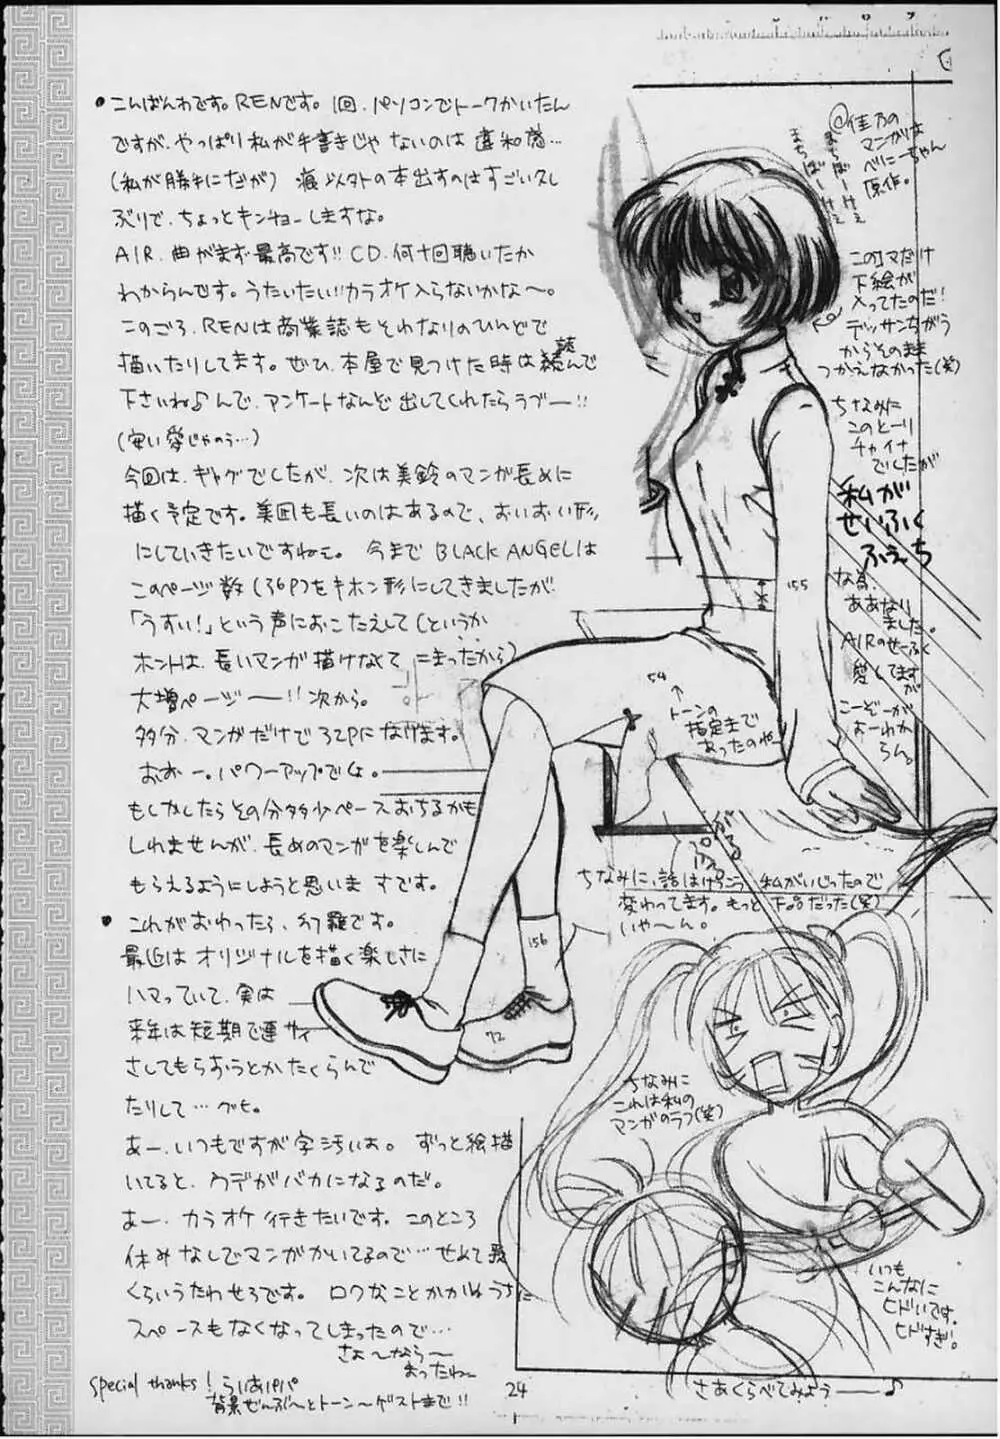 ・こんばんわです。RENです。1回、パソコンでトークかいたん
ですが、やっぱり私が手書きじゃないのは違和感…
(私が勝手にだが) 痕以外の本出すのはすごい久し
ぶりで、ちょっとキンチョーしますな。
AIR、曲がまず最高です!! CD、何十回聴いたか
わからんです。うたいたい!!カラオケ入らないかな〜。
このごろ、RENは商業誌もそれなりのひんどで
描いたりしてます。ぜひ、本屋で見つけた時は読んで
下さいね♪んで、アンケートなんぞ出してくれたらラブー!!
(安い愛じゃのう…)
今回は、ギャグでしたが、次は美鈴のマンガ長めに
描く予定です。美凪も長いのはあるので、おいおい形
にしていきたいですねっ。今まで BLACK ANGELは
このページ数(36P)をキホン形にしてきましたが
「うすい!」という声におこたえして(というか
ホントは、長いマンガ描けなくて こまったから)
大増ページ――!! 次から。
多分、マンガだけで32Pになげます。
おおー。パワーアップでし。
もしかしたらその分多少ペースおちるかも
しれませんが、長めのマンガを楽しんで
もらえるようにしようと思いま すです。
・これがおわったら、幻羅です。
最近は オリジナルを描く楽しさに
ハマっていて、実は
来年は短期で連サイ
さしてもらおうとかたくらんで
たりして…グヒ。
あー、いつもですが字汚いよ。ずっと絵描
いてると、ウデがバカになるのだ。
あー、カラオケ行きたいです。このところ
休みなしでマンガかいてるので…せめて最
くらいうたわせろです。ロクなことかかねうちに
スペースもなくなってしまったので…
さよ〜なら〜
まったねー
special thanks! らいあパパ
背景ぜんぶ〜とトーン〜ゲストまで!!
24
@佳乃の
マンガは
べにーちゃん
原作。
まちぼーけぇ
まちぼーけぇ
このコマだけ
下絵が
入ってたのだ!
デッサンちがう
からそのまま
つかえなかった(笑)
ちなみに
このとーり
チャイナ
でしたが
私が
せいふく
ふぇち
な為
ああなり
ました。
AIRのせーふく
愛してます
が
こーぞーが
よーわか
らん。
155
54
トーンの
指定まで
あったのねー
156
92
ちなみに、話はけっこう 私がいじったので
変わってます。もっと 下品だった(笑)
いや〜ん。
ちなみに
これは私の
マンガのラフ(笑)
いつも
こんなに
ヒドいです。
ヒドすぎ。
さあくらべてみよう――♪